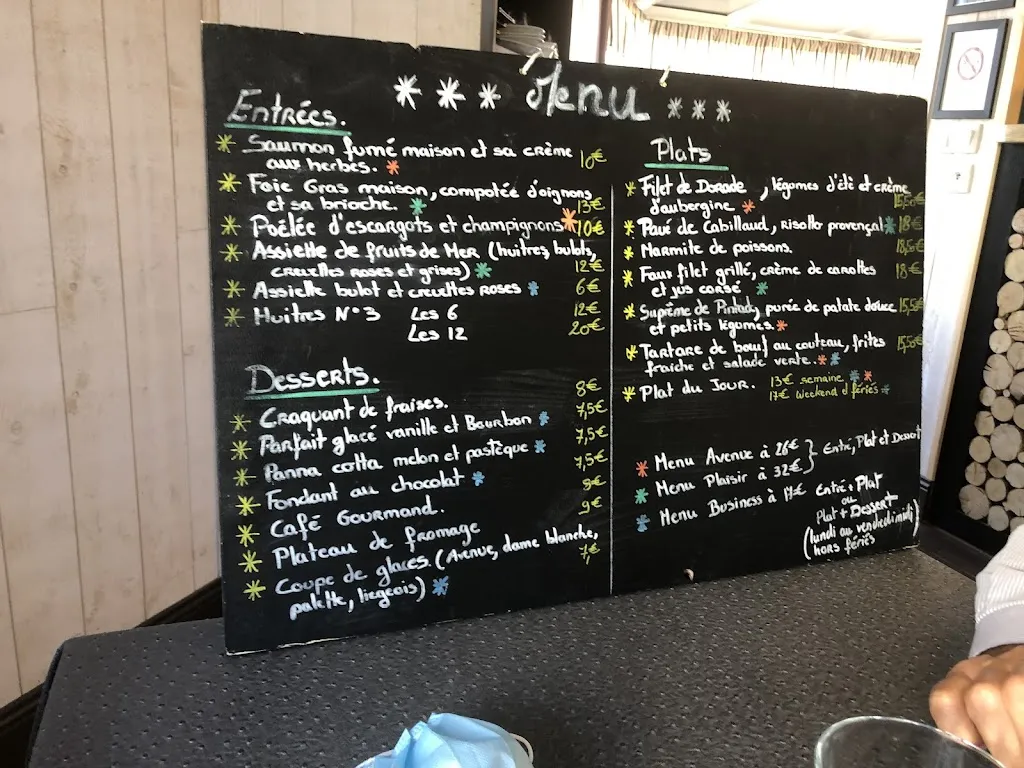 *** Menu ***
Entrées.
* Saumon fumé maison et sa crème
aux herbes. * 10€
* Foie Gras maison, compotée d'oignons
et sa brioche. * 13€
* Poêlée d'escargots et champignons * 10€
* Assiette de fruits de Mer (huitres, bulots,
crevettes roses et grises) * 12€
* Assiette bulot et crevettes roses * 6€
* Huitres N°3 Les 6 12€
Les 12 20€
Desserts.
* Craquant de fraises. 8€
* Parfait glacé vanille et Bourbon * 7,5€
* Panna cotta melon et pastèque * 7,5€
* Fondant au chocolat * 7,5€
* Café Gourmand. 8€
* Plateau de fromage 9€
* Coupe de glaces. (Avenue, dame blanche, 7€
palette, liegeois) *
Plats
* Filet de Dorade , légumes d'été et crème
d'aubergine * 15,50€
* Pavé de Cabillaud, Risotto provençal * 18€
* Marmite de poissons. 18,50€
* Faux filet grillé, crème de carottes 18€
et jus corsé *
* Suprême de Pintade, purée de patate douce 15,50€
et petits légumes. *
* Tartare de bœuf au couteau, frites 15,50€
fraiche et salade verte. * *
* Plat du Jour. 13€ semaine * *
17€ Weekend & fériés *
* Menu Avenue à 26€ } Entré, Plat et Dessert
* Menu Plaisir à 32€
* Menu Business à 17€ Entré + Plat
ou
Plat + Dessert
(lundi au vendredi midi)
hors fériés